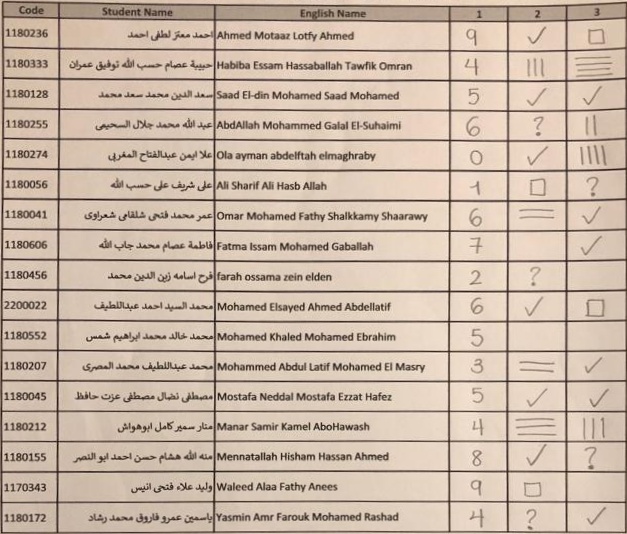 Code Student Name English Name 1 2 3
1180236 احمد معتز لطفى احمد Ahmed Motaaz Lotfy Ahmed 9 ✓ □
1180333 حبيبة عصام حسب الله توفيق عمران Habiba Essam Hassaballah Tawfik Omran 4 |||
1180128 سعد الدين محمد سعد محمد Saad El-din Mohamed Saad Mohamed 5 ✓ ✓
1180255 عبد الله محمد جلال السحيمى AbdAllah Mohammed Galal El-Suhaimi 6 ? ||
1180274 علا ايمن عبدالفتاح المغربى Ola ayman abdelftah elmaghraby 0 ✓ ||||
1180056 على شريف على حسب الله Ali Sharif Ali Hasb Allah 1 □ ?
1180041 عمر محمد فتحى شلقامى شعراوى Omar Mohamed Fathy Shalkkamy Shaarawy 6 = ✓
1180606 فاطمة عصام محمد جاب الله Fatma Issam Mohamed Gaballah 7 ✓
1180456 فرح اسامه زين الدين محمد farah ossama zein elden 2 ?
2200022 محمد السيد احمد عبداللطيف Mohamed Elsayed Ahmed Abdellatif 6 ✓ □
1180552 محمد خالد محمد ابراهيم شمس Mohamed Khaled Mohamed Ebrahim 5
1180207 محمد عبداللطيف محمد المصرى Mohammed Abdul Latif Mohamed El Masry 3 = ✓
1180045 مصطفى نضال مصطفى عزت حافظ Mostafa Neddal Mostafa Ezzat Hafez 5 ✓ ✓
1180212 منار سمير كامل ابوهواش Manar Samir Kamel AboHawash 4 ≡ |||
1180155 منه الله هشام حسن احمد ابو النصر Mennatallah Hisham Hassan Ahmed 8 ✓ ?
1170343 وليد علاء فتحى انيس Waleed Alaa Fathy Anees 9 □
1180172 ياسمين عمرو فاروق محمد رشاد Yasmin Amr Farouk Mohamed Rashad 4 ? ✓